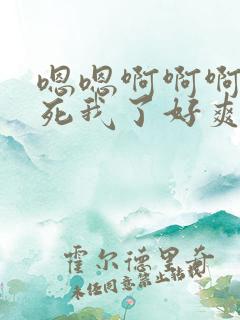 嗯嗯啊啊啊
死我了好爽
霍尔德里奇
未经同意禁止转载